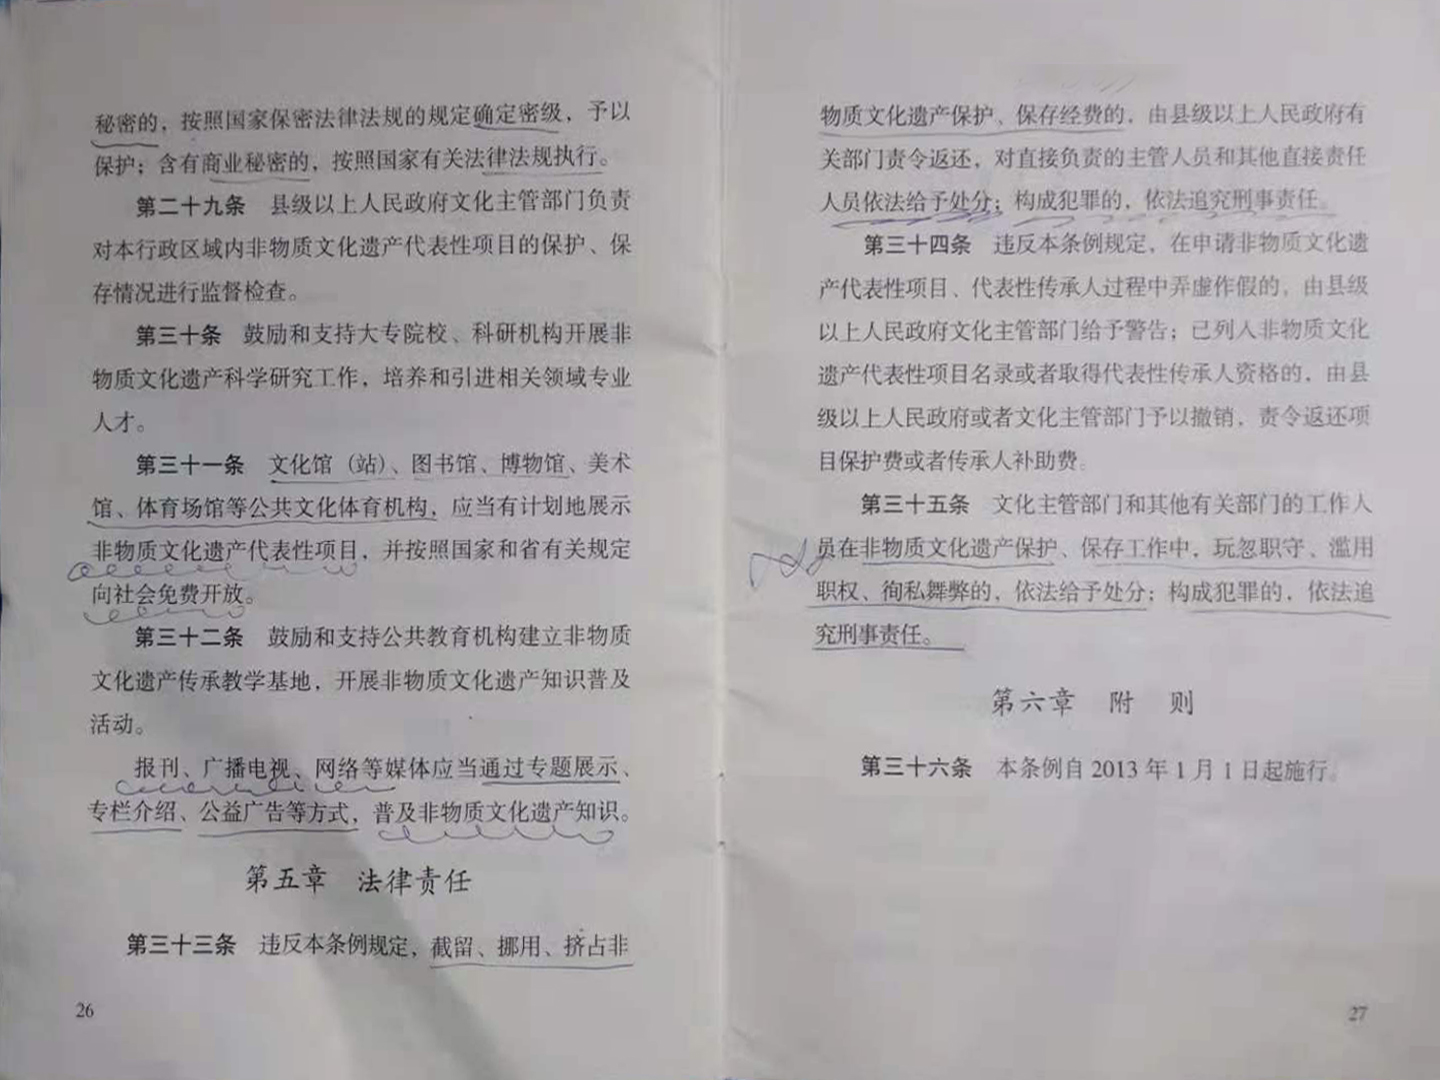 秘密的，按照国家保密法律法规的规定确定密级，予以
保护；含有商业秘密的，按照国家有关法律法规执行。
第二十九条　县级以上人民政府文化主管部门负责
对本行政区域内非物质文化遗产代表性项目的保护、保
存情况进行监督检查。
第三十条　鼓励和支持大专院校、科研机构开展非
物质文化遗产科学研究工作，培养和引进相关领域专业
人才。
第三十一条　文化馆（站）、图书馆、博物馆、美术
馆、体育场馆等公共文化体育机构，应当有计划地展示
非物质文化遗产代表性项目，并按照国家和省有关规定
向社会免费开放。
第三十二条　鼓励和支持公共教育机构建立非物质
文化遗产传承教学基地，开展非物质文化遗产知识普及
活动。
报刊、广播电视、网络等媒体应当通过专题展示、
专栏介绍、公益广告等方式，普及非物质文化遗产知识。
第五章　法律责任
第三十三条　违反本条例规定，截留、挪用、挤占非
26
物质文化遗产保护、保存经费的，由县级以上人民政府有
关部门责令返还，对直接负责的主管人员和其他直接责任
人员依法给予处分；构成犯罪的，依法追究刑事责任。
第三十四条　违反本条例规定，在申请非物质文化遗
产代表性项目、代表性传承人过程中弄虚作假的，由县级
以上人民政府文化主管部门给予警告；已列入非物质文化
遗产代表性项目名录或者取得代表性传承人资格的，由县
级以上人民政府或者文化主管部门予以撤销，责令返还项
目保护费或者传承人补助费。
第三十五条　文化主管部门和其他有关部门的工作人
员在非物质文化遗产保护、保存工作中，玩忽职守、滥用
职权、徇私舞弊的，依法给予处分；构成犯罪的，依法追
究刑事责任。
第六章　附　则
第三十六条　本条例自2013年1月1日起施行。
27